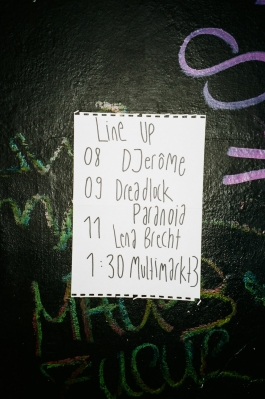 Line Up
08 DJerome
09 Dreadlock
Paranoia
11 Lena Brecht
1:30 Multimarkt3